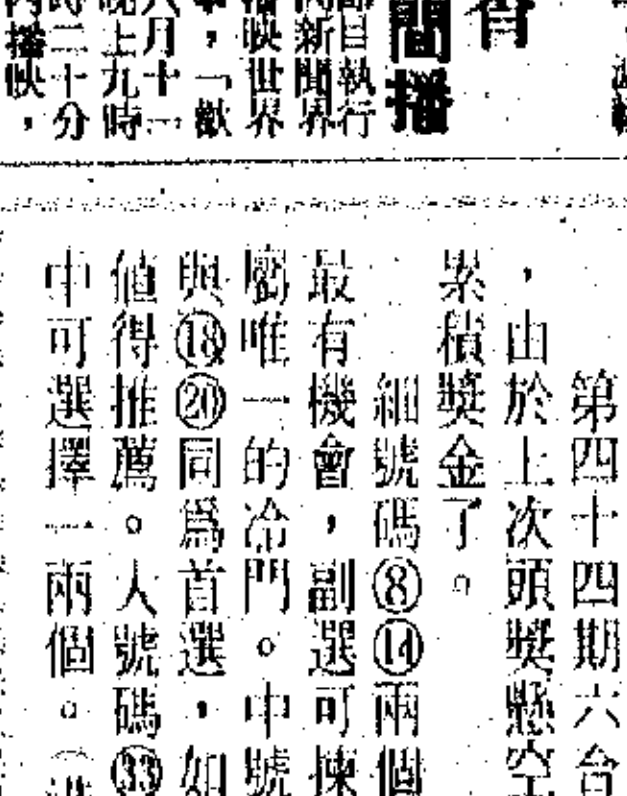 間播
節目執行
內新聞界
播映世界
，「歡
六月十一
晚上九時
時二十分
內播映，
第四十四期六合
，由於上次頭獎懸空
累積獎金了。
細號碼⑧⑭兩個
最有機會，副選可揀
屬唯一的冷門。中號
與⑱⑳同為首選，如
值得推薦。大號碼㉝
中可選擇一兩個。